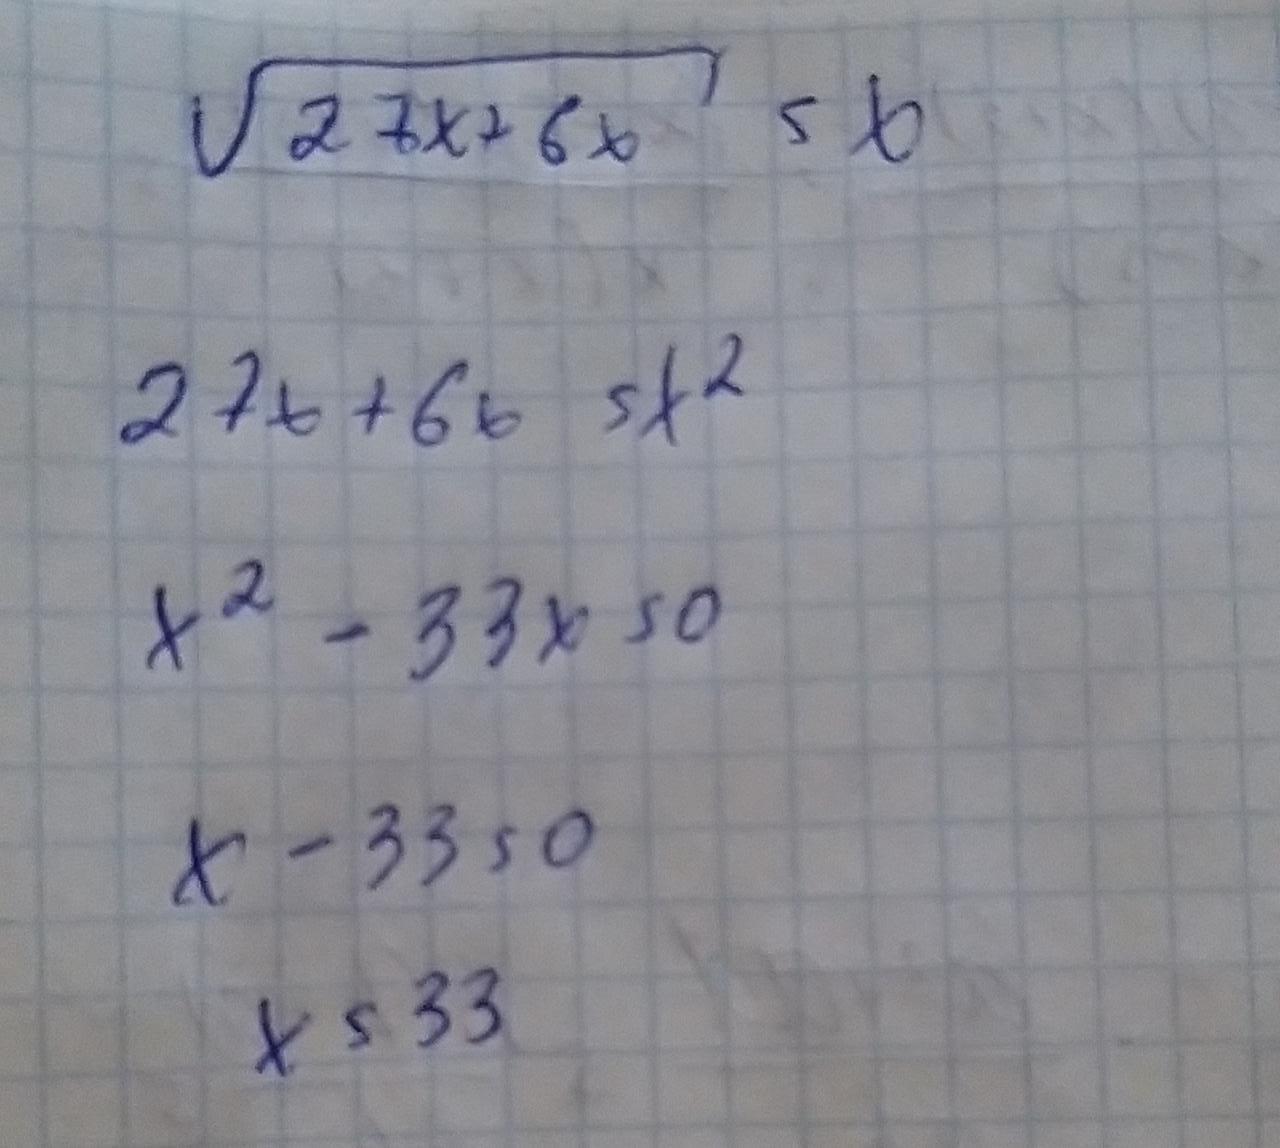 √(27x+6x) = x
27x+6x = x²
x² - 33x = 0
x - 33 = 0
x = 33